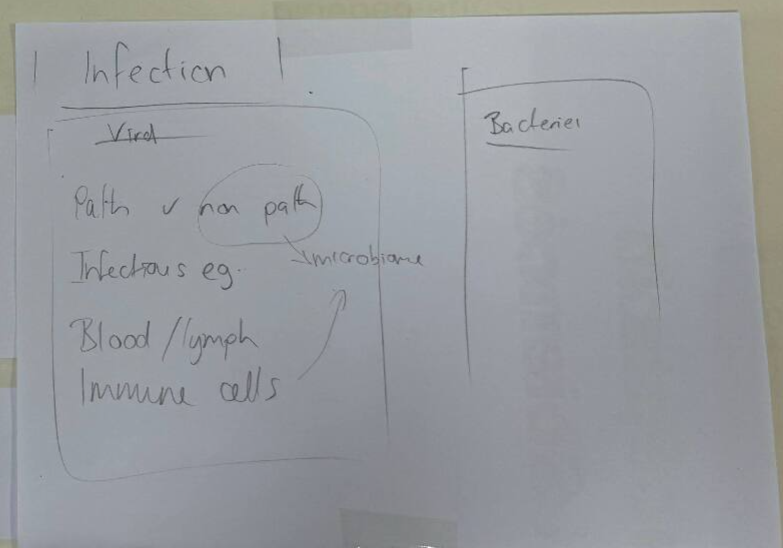 Infection
Viral
Path v non path
microbiome
Infectious eg.
Blood/lymph
Immune cells
Bacteries